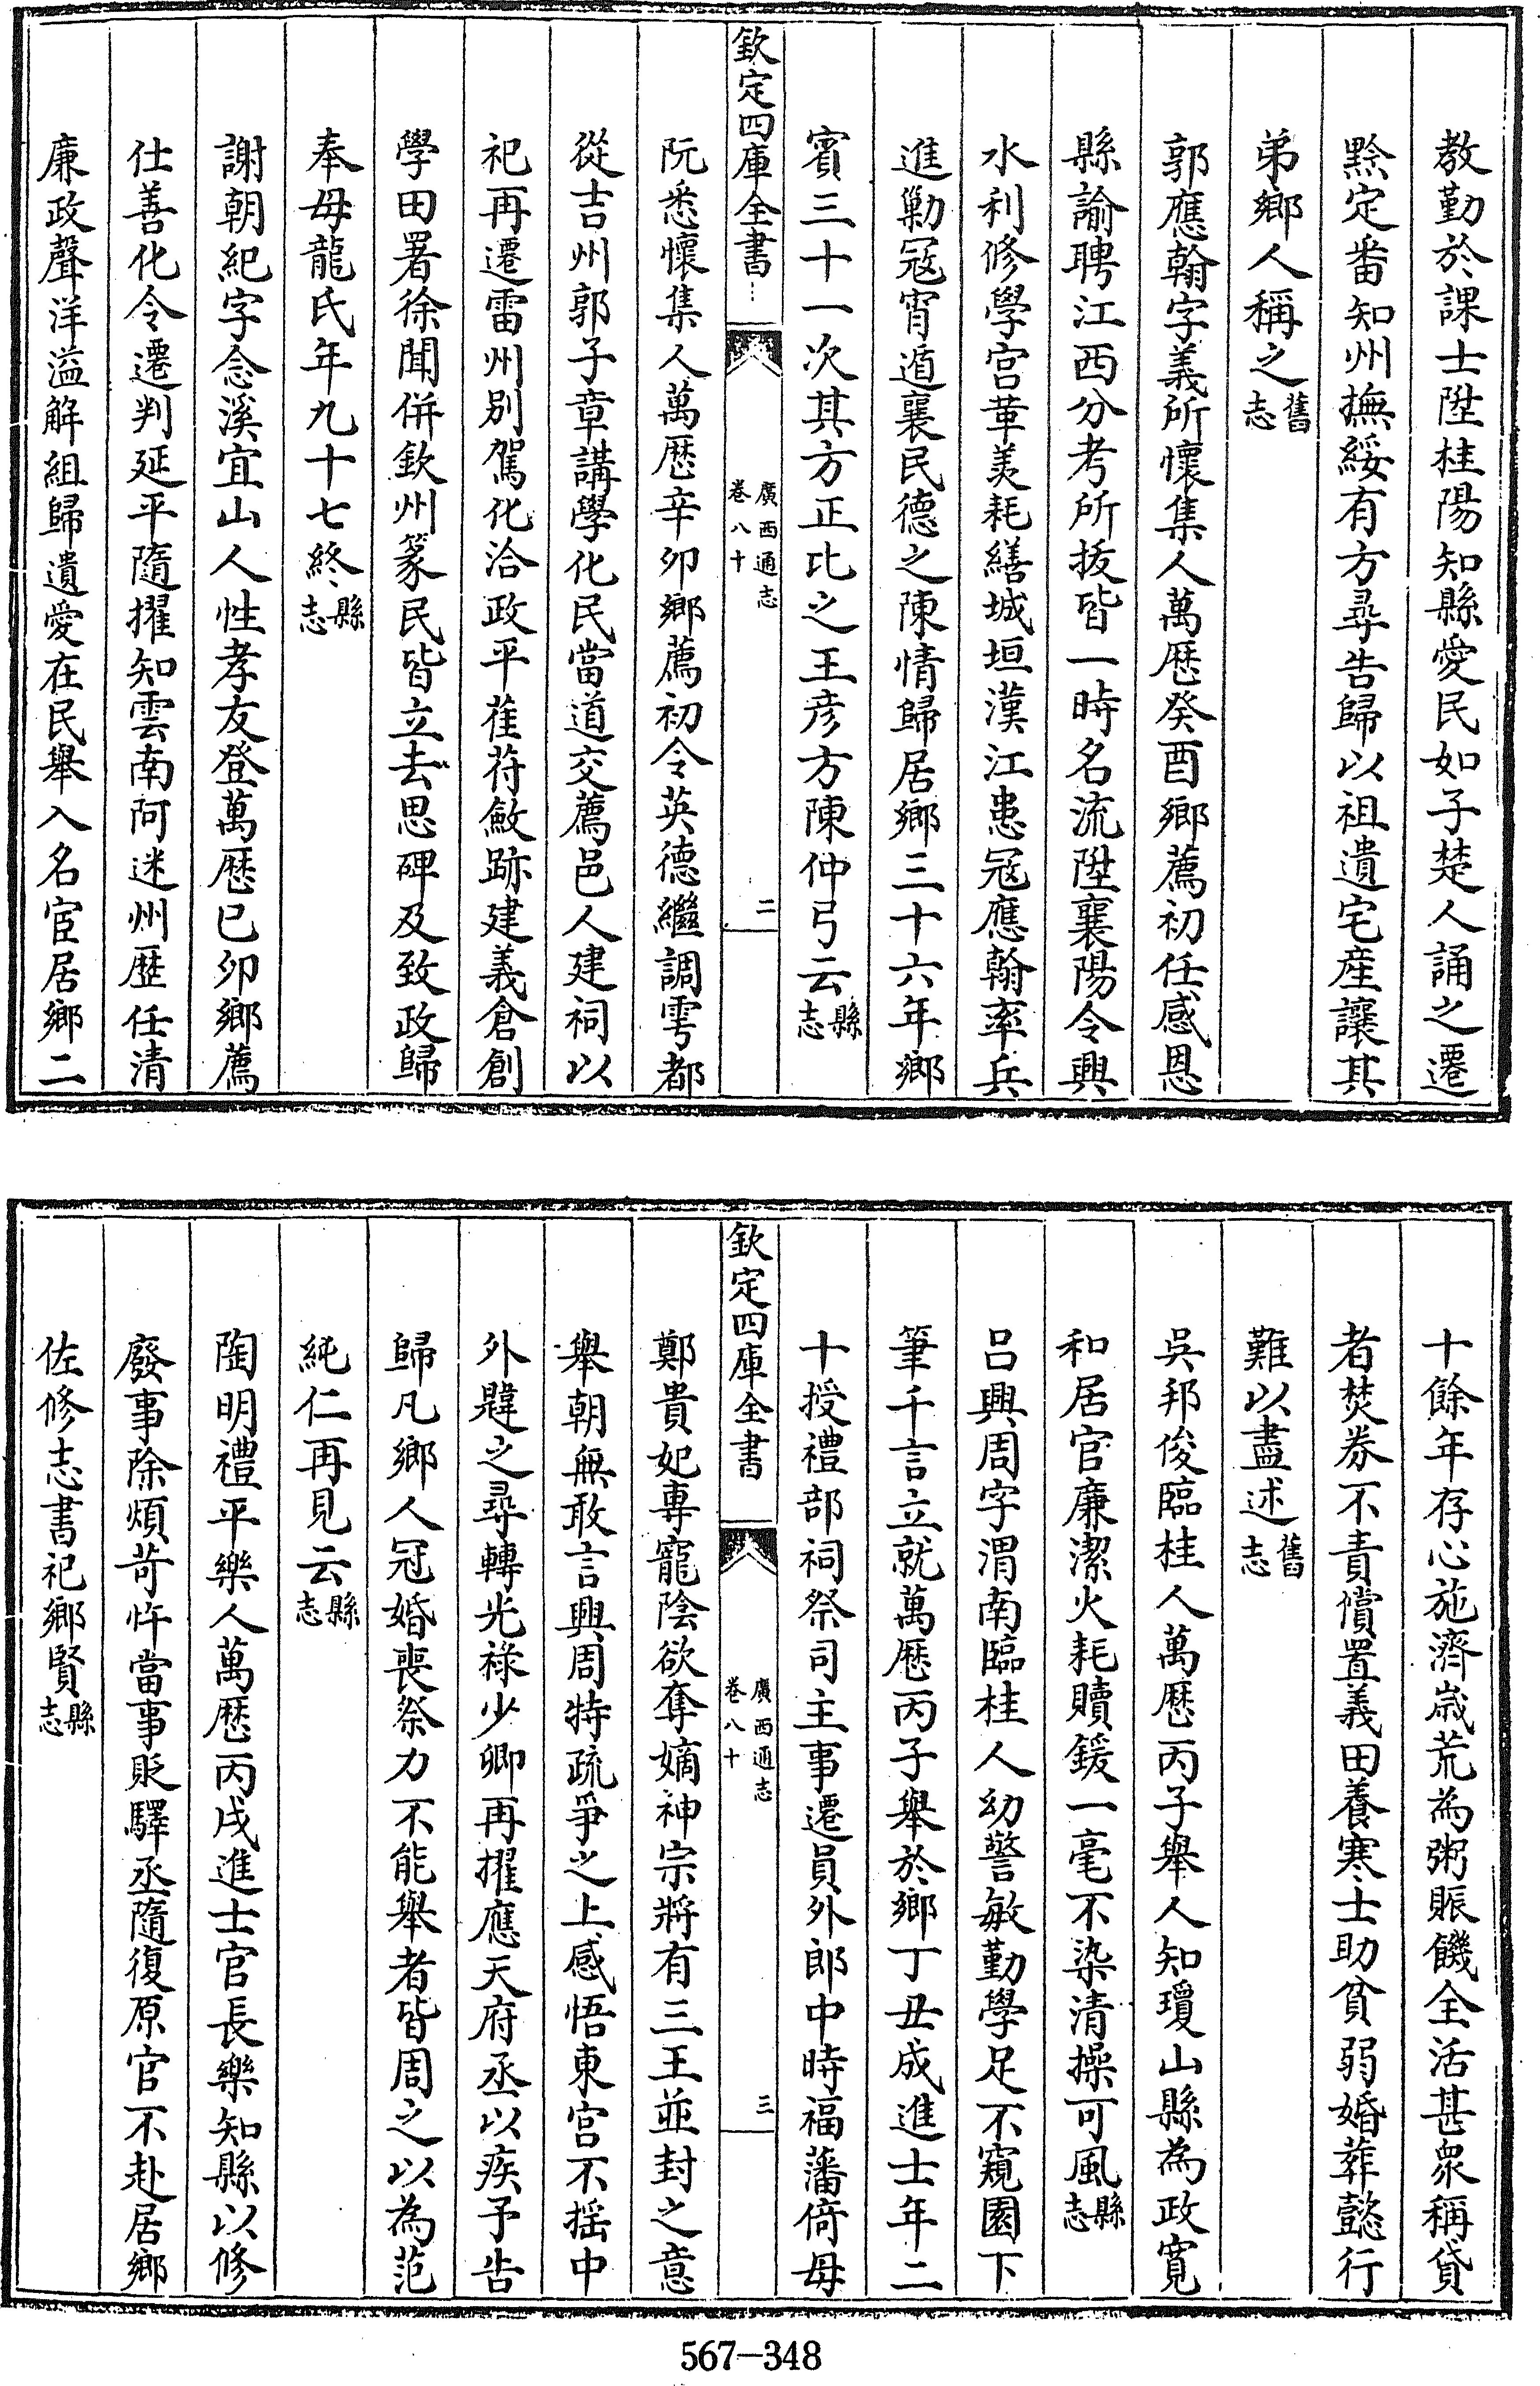 教勤於課士陞桂陽知縣愛民如子楚人誦之遷
黔定番知州撫綏有方尋告歸以祖遺宅産讓其
弟鄉人稱之舊志
郭應翰字義所懷集人萬厯癸酉鄉薦初任感恩
縣諭聘江西分考所拔皆一時名流陞襄陽令興
水利修學宫革羡耗繕城垣漢江患寇應翰率兵
進勦寇宵遁襄民德之陳情歸居鄉三十六年鄉
賓三十一次其方正比之王彦方陳仲弓云縣志
欽定四庫全書
廣西通志
卷八十
二
阮悉懷集人萬厯辛卯鄉薦初令英德繼調雩都
從吉州郭子章講學化民當道交薦邑人建祠以
祀再遷雷州別駕化洽政平萑苻斂跡建義倉創
學田署徐聞併欽州篆民皆立去思碑及致政歸
奉母龍氏年九十七終縣志
謝朝紀字念溪宜山人性孝友登萬厯已卯鄉薦
仕善化令遷判延平隨擢知雲南阿迷州歴任清
廉政聲洋溢解組歸遺愛在民舉入名宦居鄉二
十餘年存心施濟歳荒為粥賑饑全活甚衆稱貸
者焚券不責償置義田養寒士助貧弱婚葬懿行
難以盡述舊志
吳邦俊臨桂人萬厯丙子舉人知瓊山縣為政寛
和居官廉潔火耗贖鍰一毫不染清操可風縣志
吕興周字渭南臨桂人幼警敏勤學足不窺園下
筆千言立就萬厯丙子舉於鄉丁丑成進士年二
十授禮部祠祭司主事遷員外郎中時福藩倚母
欽定四庫全書
廣西通志
卷八十
三
鄭貴妃専寵陰欲奪嫡神宗將有三王並封之意
舉朝無敢言興周特疏爭之上感悟東宫不揺中
外韙之尋轉光祿少卿再擢應天府丞以疾予告
歸凡鄉人冠婚喪祭力不能舉者皆周之以為范
純仁再見云縣志
陶明禮平樂人萬厯丙戌進士官長樂知縣以修
廢事除煩苛忤當事貶驛丞隨復原官不赴居鄉
佐修志書祀鄉賢縣志
567-348